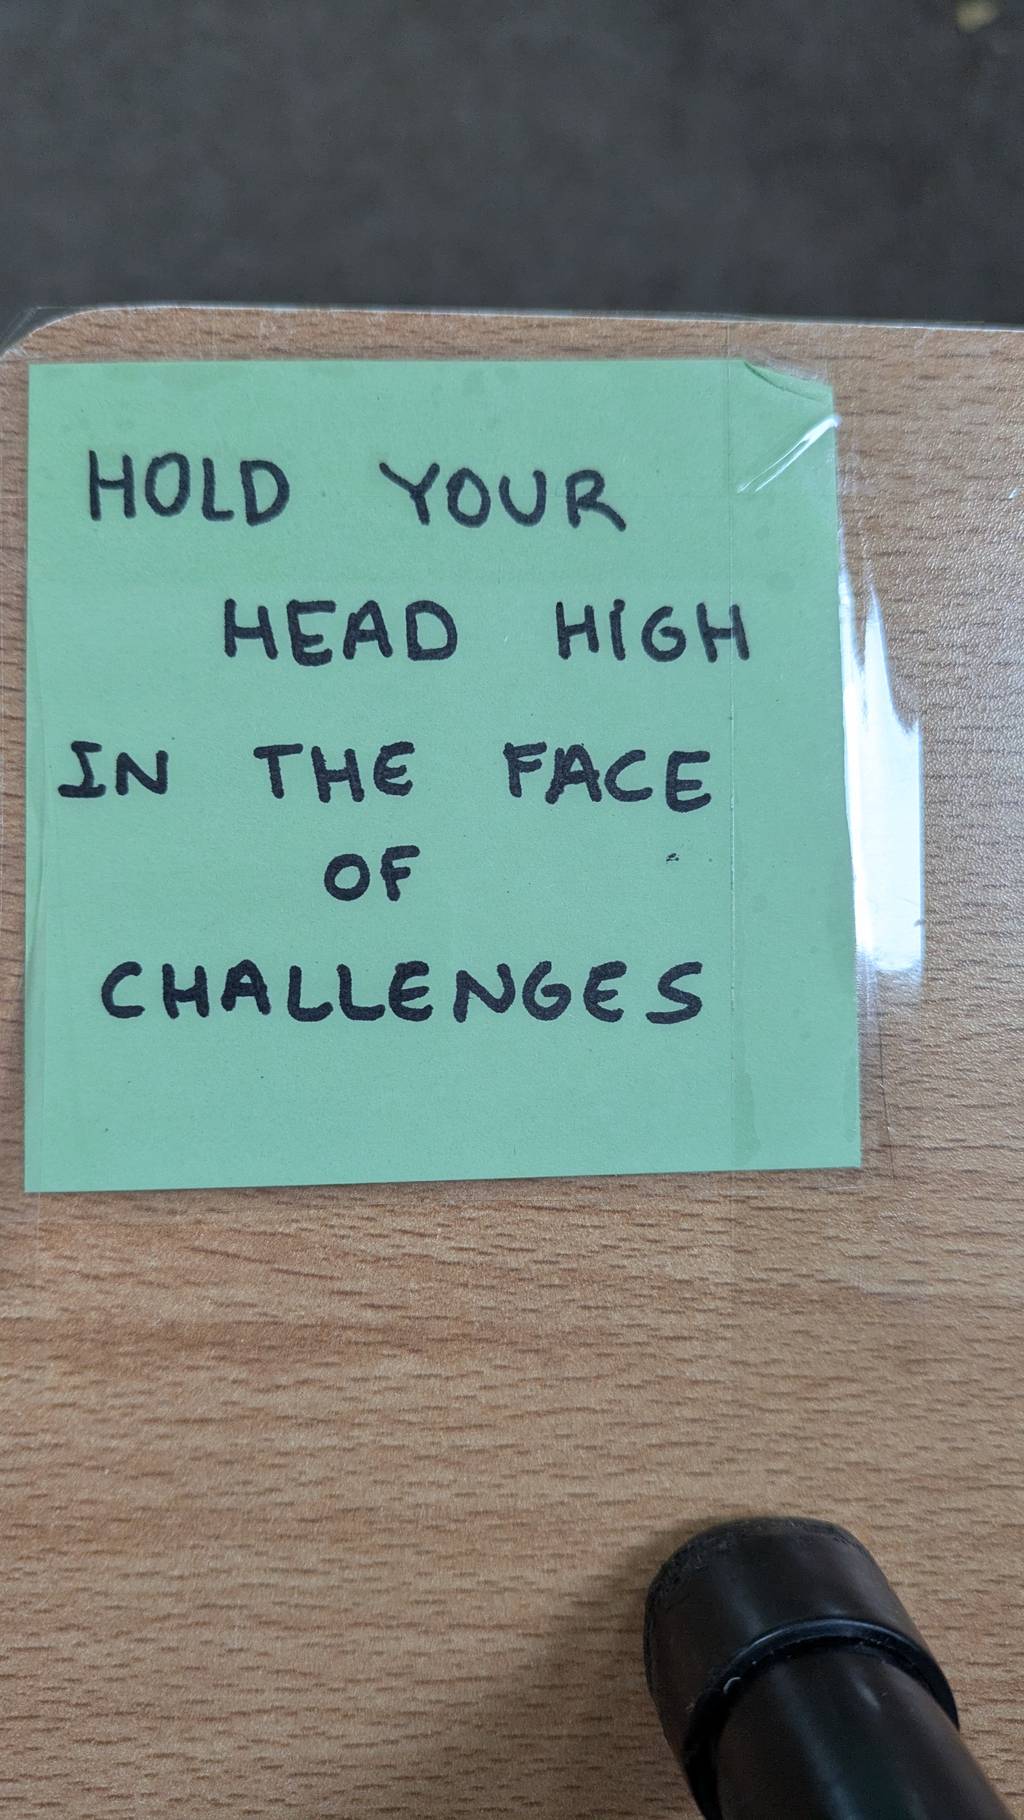 HOLD YOUR
HEAD HIGH
IN THE FACE
OF
CHALLENGES